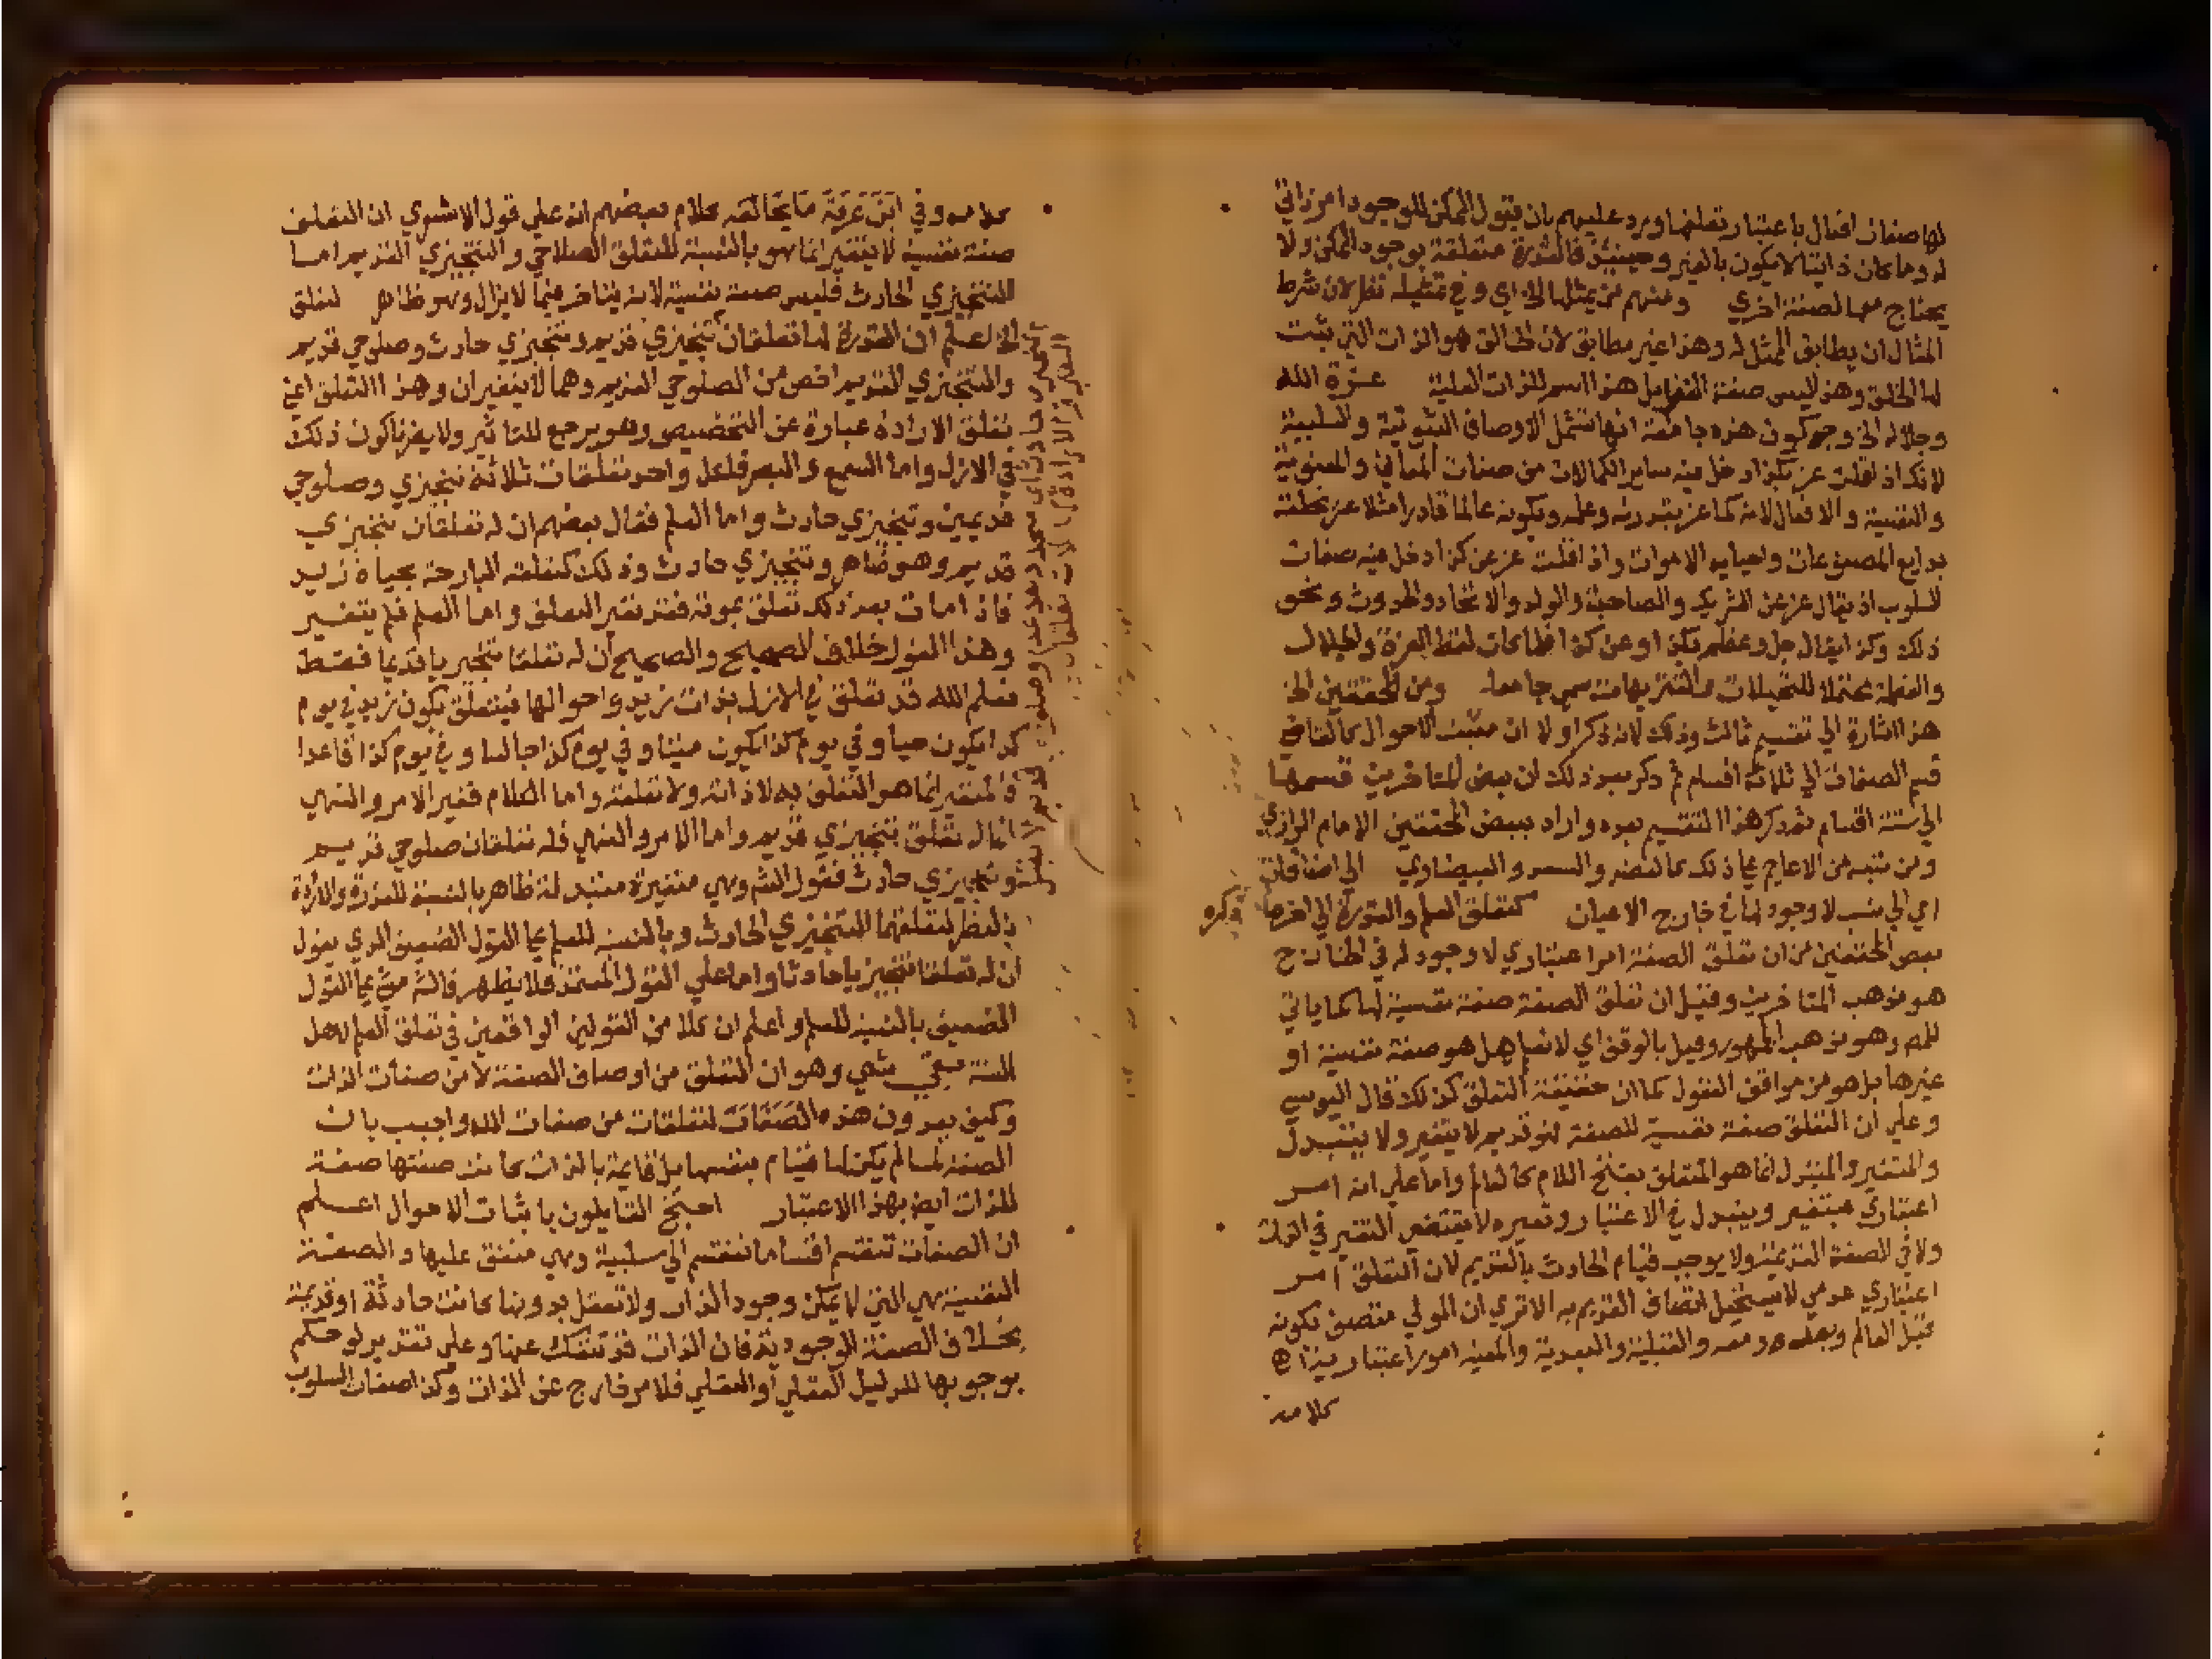 لها صفات افعال باعتبار تعلقها ويرد عليهم بان قبول الممكن للوجود امر ذاتي
له وما كان ذاتيا لا يكون بالغير وحينئذ فالقدرة متعلقة بوجود الممكن ولا
يحتاج معها لصفة اخري ومنهم من يمثلها الخ اي وفي تمثيله نظر لان شرط
المثال ان يطابق الممثل له وهذا غير مطابق لان الخالق هو الذات التي ثبت
لها الخلق وهذا ليس صفة الفعل بل هذا اسم للذات العلية عزة الله
وجلاله الخ وجه كون هذه جامعة انها تشمل الاوصاف الثبوتية والسلبية
لانك اذا قلت عز بكذا دخل فيه ساير الكمالات من صفات المعاني والمعنوية
والنفسية والافعال لانه كما عز بقدرته وعلمه وبكونه عالما قادرا مثلا عز بخلقه
بدايع المصنوعات واحيايه الاموات واذا قلت عز عن كذا دخل فيه صفات
السلوب اذ يقال عز عن الشريك والصاحبة والولد والاتحاد والحدوث ونحو
ذلك وكذا يقال جل وعظم بكذا او عن كذا فلما كان لفظ العزة والجلال
والعظمة محتملا للتحليلات والتنزيهات سمي جامعا ومن المحققين الخ
هذا اشارة الي تقسيم ثالث وذلك لانه ذكر اولا ان مثبت الاحوال كالقاضي
قسم الصفات الي ثلاثة اقسام ثم ذكر بعد ذلك ان بعض المتاخرين قسمها
الي ستة اقسام ثم ذكر هذا التقسيم بعده واراد ببعض المحققين الامام الرازي
ومن تبعه من الاعاجم علي ذلك كالعضد والسعد والبيضاوي الي اضافات
اي الي نسب لا وجود لها في خارج الاعيان كتعلق العلم والقدرة الي اخره ما ذكره
بعض المحققين من ان تعلق الصفة امر اعتباري لا وجود له في الخارج
هو مذهب المتاخرين وقيل ان تعلق الصفة صفة نفسية لها كما ياتي
للمص وهو مذهب الجمهور وقيل بالوقف اي لا نعلم هل هو صفة نفسية او
غيرها بل هو من مواقف العقول كما ان حقيقة التعلق كذلك قال اليوسي
وعلي ان التعلق صفة نفسية للصفة فهو قديم لا يتغير ولا يتبدل
والمتغير والمتبدل انما هو المتعلق بفتح اللام كالعالم واما علي انه امر
اعتباري فيتغير ويتبدل في الاعتبار وتغيره لا يقتضي التغير في الذات
ولا في الصفة القديمة ولا يوجب قيام الحادث بالقديم لان التعلق امر
اعتباري عدمي لا يستحيل اتصاف القديم به الا تري ان المولي متصف بكونه
قبل العالم وبعده ومعه والقبلية والبعدية والمعية امور اعتبارية اه
كلامه
كلامه وفي ابن عرفة ما يخالفه كلام بعضهم انه علي قول الاشعري ان التعلق
صفة نفسية لا يتغير انما هو بالنسبة للتعلق الصلاحي والتنجيزي القديم اما
التنجيزي الحادث فليس صفة نفسية لانه يتاخر فيما لا يزال وهو ظاهر لتعلق
الخ اعلم ان القدرة لها تعلقان تنجيزي قديم وتنجيزي حادث وصلوحي قديم
والتنجيزي القديم اخص من الصلوحي القديم وهما لا يتغيران وهذا التعلق اعني
تعلق الارادة عبارة عن التخصيص وهو يرجع للتاثير ولا يضرنا كون ذلك
في الازل واما السمع والبصر فلكل واحد تعلقات ثلاثة تنجيزي وصلوحي
قديمين وتنجيزي حادث واما العلم فقال بعضهم ان له تعلقان تنجيزي
قديم وهو ظاهر وتنجيزي حادث وذلك كتعلقه البارحة بحياة زيد
فاذا مات بعد ذلك تعلق بموته فقد تغير التعلق واما العلم فلم يتغير
وهذا القول خلاف الصحيح والصحيح ان له تعلقا تنجيزيا قديما فقط
فعلم الله قد تعلق في الازل بذات زيد واحوالها فيتعلق بكون زيد في يوم
كذا يكون حيا وفي يوم كذا يكون ميتا وفي يوم كذا جالسا وفي يوم كذا قاعدا
فالمتغير انما هو المتعلق به لا ذاته ولا تعلقه واما الكلام فغير الامر والنهي
انما له تعلق تنجيزي قديم واما الامر والنهي فله تعلقان صلوحي قديم
وتنجيزي حادث فقول الشم وهي متغيرة متبدلة ظاهر بالنسبة للقدرة والارادة
بالنظر لتعلقهما التنجيزي الحادث وبالنسبة للعلم علي القول الضعيف الذي يقول
ان له تعلقا تنجيزيا حادثا واما علي القول المعتمد فلا يظهر فالشم مشي علي القول
الضعيف بالنسبة للعلم واعلم ان كلا من القولين الواقعين في تعلق العلم لاهل
السنة بقي شي وهو ان التعلق من اوصاف الصفة لا من صفات الذات
وكيف يعدون هذه الصفات لتعلقات من صفات الله واجيب بان
الصفة لما لم يكن لها قيام بنفسها بل قايمة بالذات كانت صفتها صفة
للذات ايض بهذا الاعتبار احتج القايلون باثبات الاحوال اعلم
ان الصفات تنقسم اقساما تنقسم الي سلبية وهي متفق عليها والصفة
النفسية هي التي لا يمكن وجود الذات ولا تعقل بدونها كانت حادثة او قديمة
بخلاف الصفة الوجودية فان الذات قد تنفك عنها وعلي تقدير لو حكم
بوجوبها للدليل العقلي او النقلي فلامر خارج عن الذات وكذا صفات السلوب